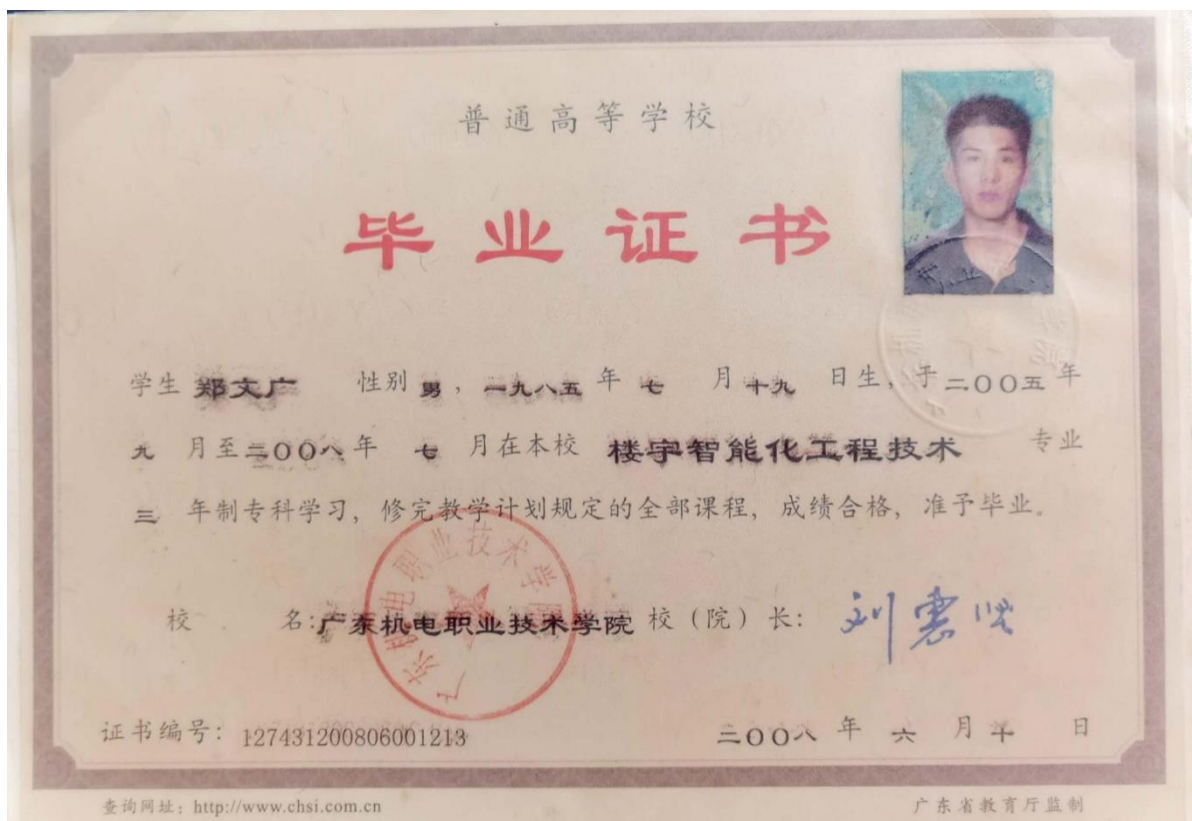 普通高等学校
毕业证书
学生 郑文广 性别 男，一九八五 年 七 月 十九 日生，于 二〇〇五 年
九 月至 二〇〇八 年 七 月在本校 楼宇智能化工程技术 专业
三 年制专科学习，修完教学计划规定的全部课程，成绩合格，准予毕业。
校 名：广东机电职业技术学院 校（院）长：
广东机电职业技术学院
证书编号：127431200806001213 二〇〇八 年 六 月 日
查询网址：http://www.chsi.com.cn 广东省教育厅监制